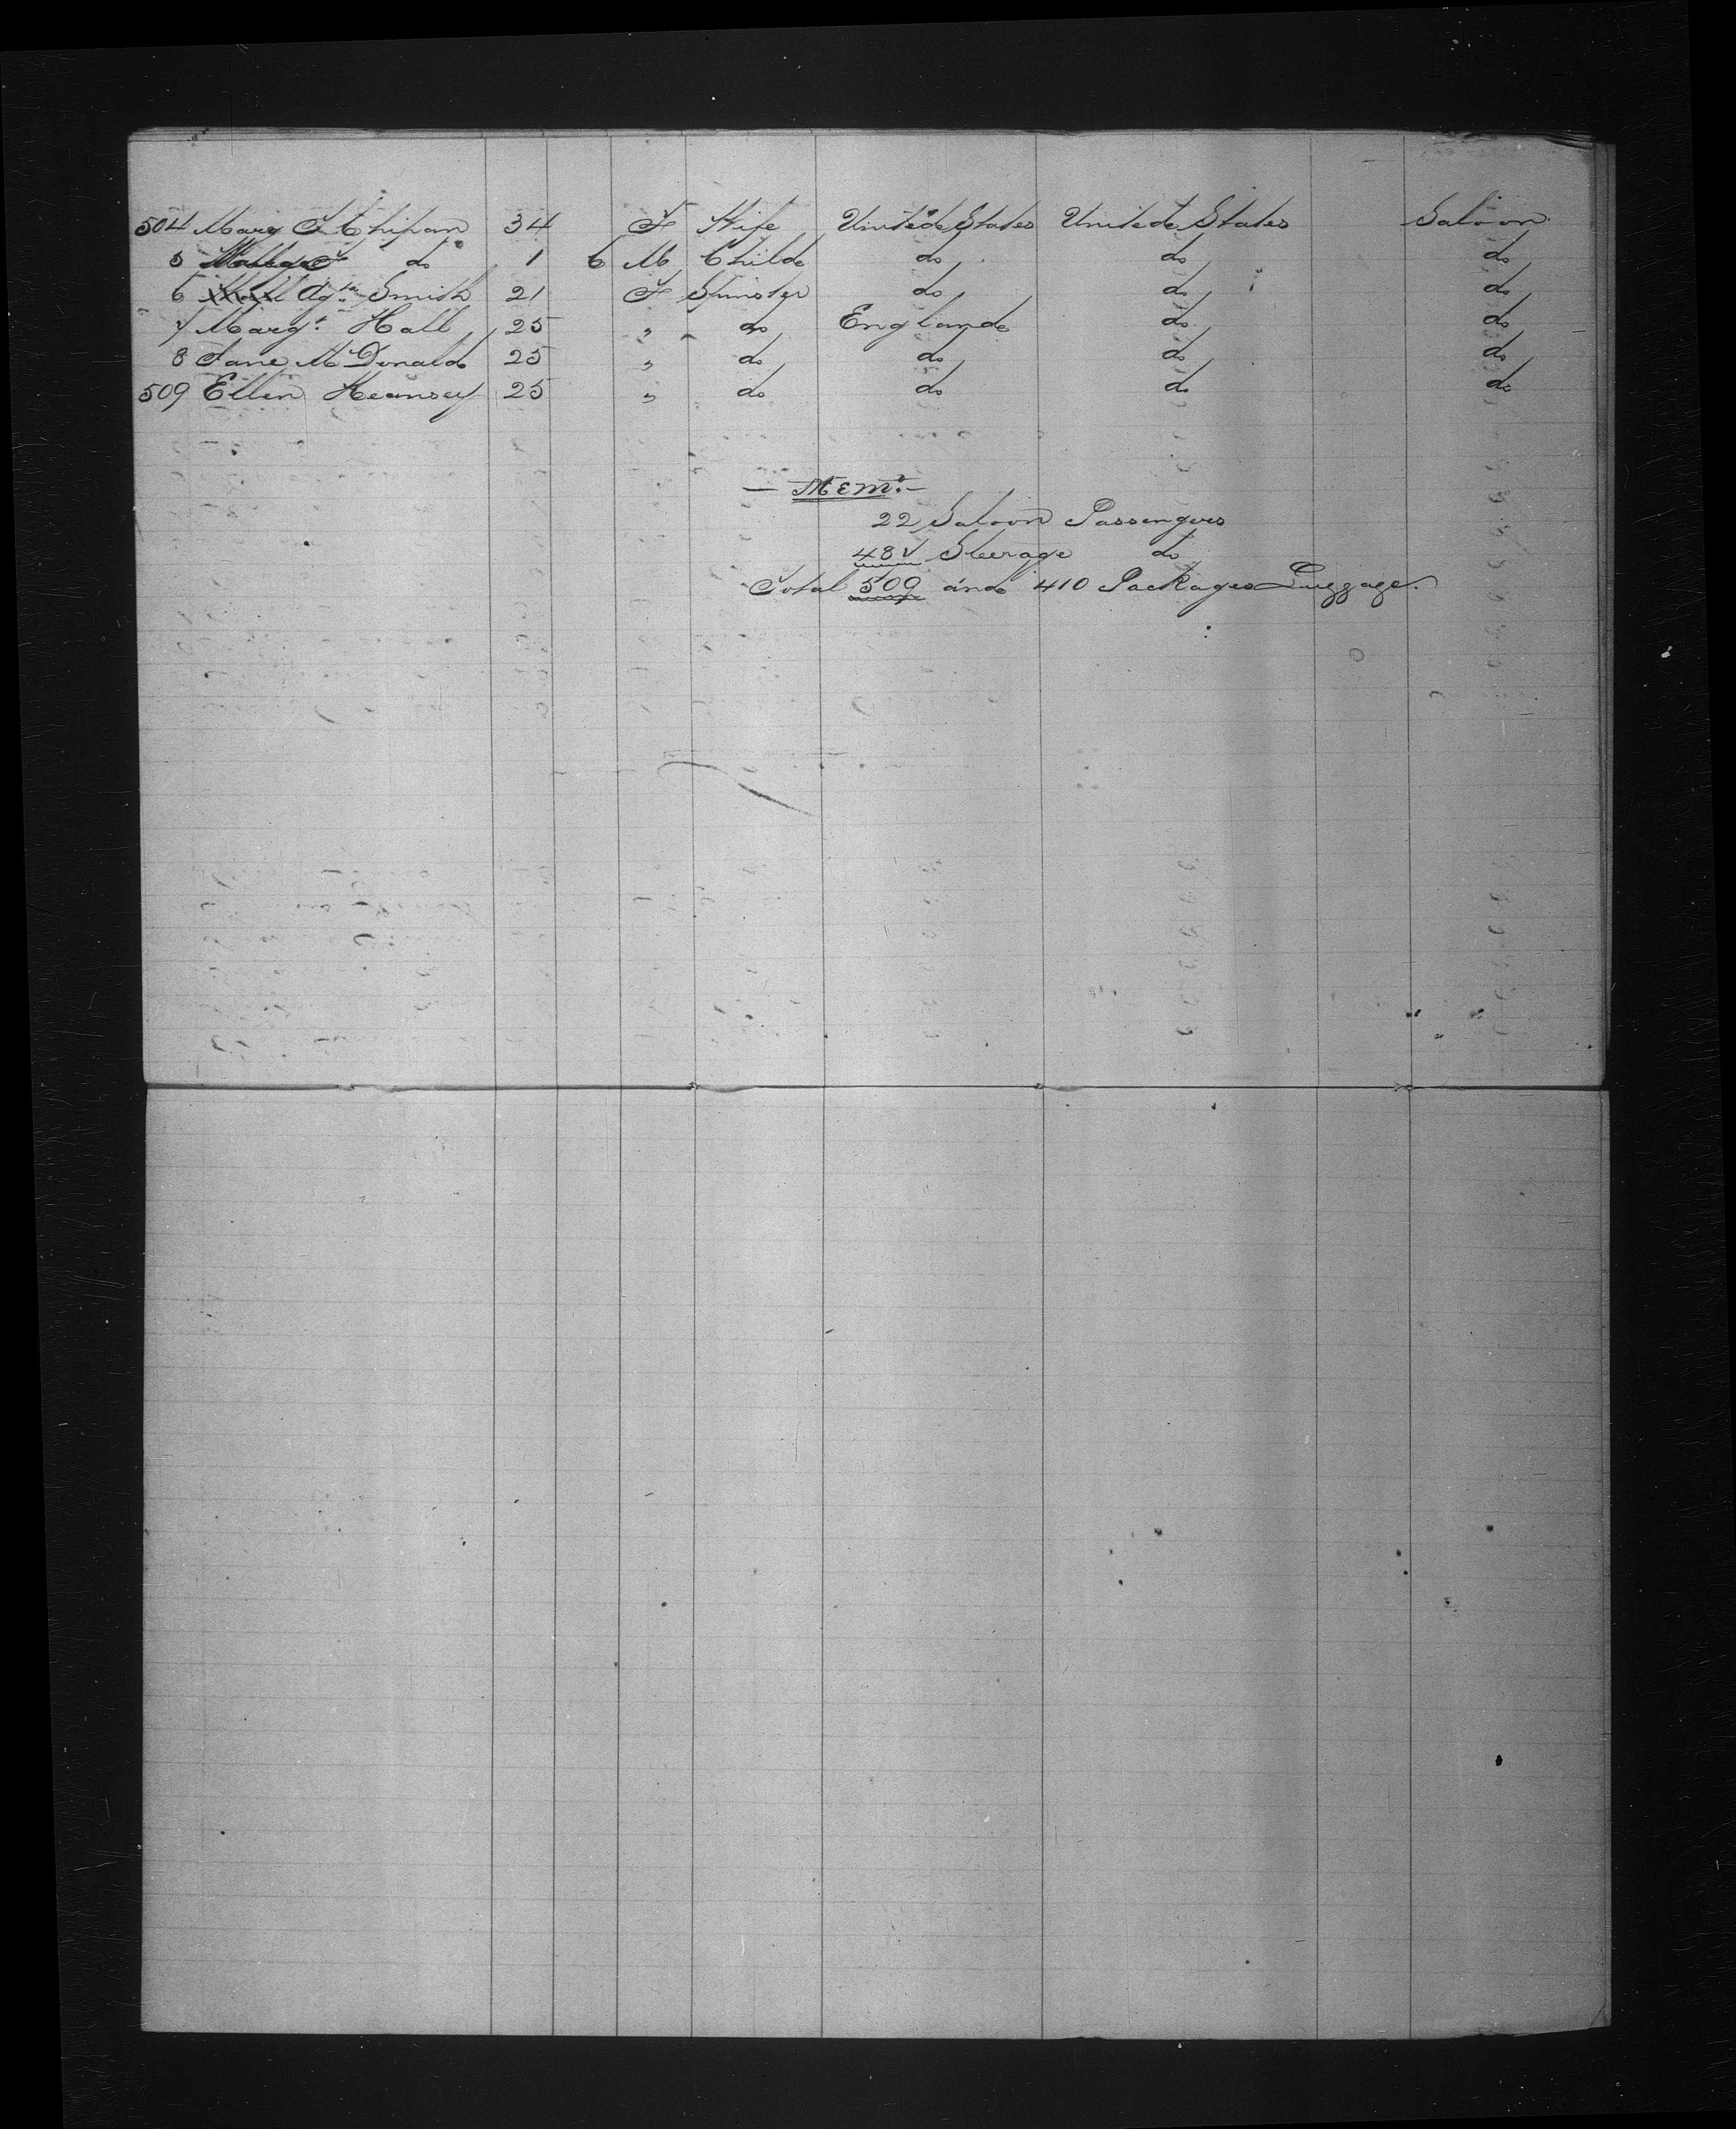 504 Mary F Chipan 34 F Wife United States United States Saloon
5 do 1 6 M Child do do do
6 Agta Smith 21 F Spinster do do do
7 Margt Hall 25 " do England do do
8 Jane McDonald 25 " do do do do
509 Ellen Kearsey 25 " do do do do
— Memo. —
22 Saloon Passengers
487 Steerage do
Total 509 and 410 Packages Luggage.